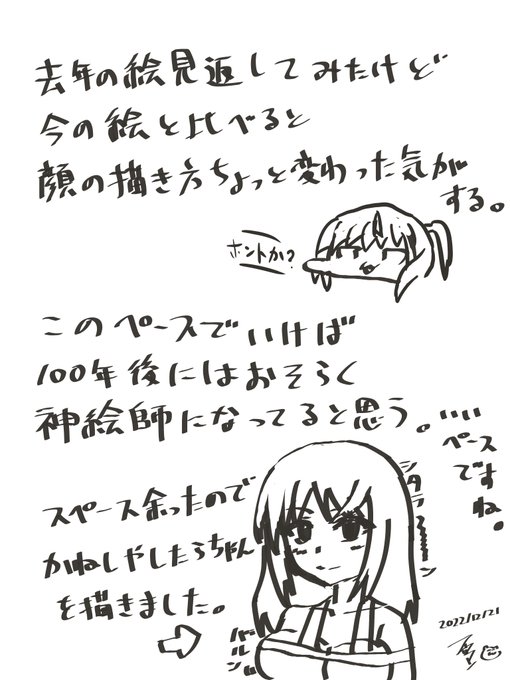 去年の絵見返してみたけど
今の絵と比べると
顔の描き方ちょっと変わった気が
する。
ホントか?
このペースでいけば
100年後にはおそらく
神絵師になってると思う。
いい
ペース
ですね。
スペース余ったので
かねしやしたらちゃん
を描きました。
シタラ〜ン
バルン
2022/12/21